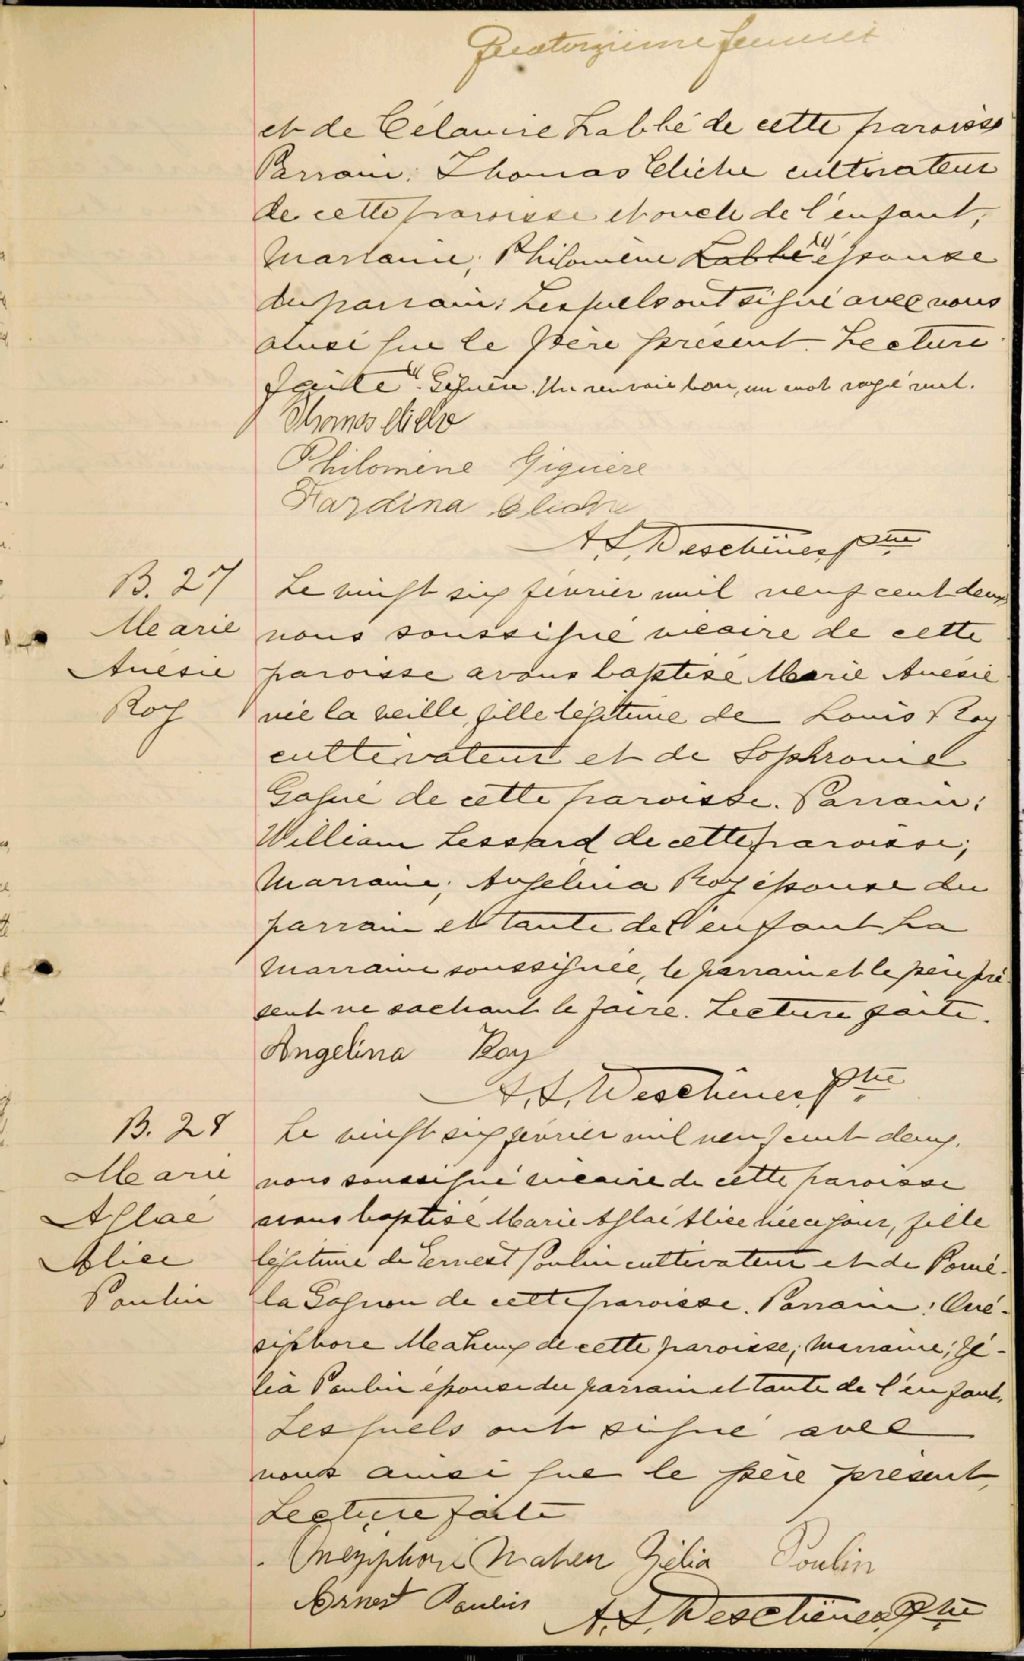 Quatorzième feuillet
et de Célanire Labbé de cette paroisse
Parrain: Thomas Cliche cultivateur
de cette paroisse et oncle de l'enfant;
Marraine; Philomène Labbé (1) épouse
du parrain; Lesquels ont signé avec nous
ainsi que le père présent. Lecture
faite (1) Giguère. Un renvoi bon, un mot rayé nul.
Thomas Cliche
Philomène Giguère
Cliche
A. S. Deschênes, Ptre
B. 27
Marie
Anésie
Roy
Le vingt six février mil neuf cent deux
nous soussigné vicaire de cette
paroisse avons baptisé Marie Anésie
née la veille, fille légitime de Louis Roy
cultivateur et de Sophronie
Gagné de cette paroisse. Parrain:
William Lessard de cette paroisse;
Marraine; Angélina Roy épouse du
parrain et tante de l'enfant La
marraine soussignée, le parrain et le père pré-
sent ne sachant le faire. Lecture faite.
Angelina Roy
A. S. Deschênes, Ptre
B. 28
Marie
Aglaé
Alice
Poulin
Le vingt six février mil neuf cent deux.
nous soussigné vicaire de cette paroisse
avons baptisé Marie Aglaé Alice née ce jour, fille
légitime de Ernest Poulin cultivateur et de Pomé-
la Gagnon de cette paroisse. Parrain: Oné-
siphore Maheux de cette paroisse; marraine; Zé-
lia Poulin épouse du parrain et tante de l'enfant.
Lesquels ont signé avec
nous ainsi que le père présent,
Lecture faite
Onéziphore Maheu Zélia Poulin
Ernest Poulin
A. S. Deschênes, Ptre